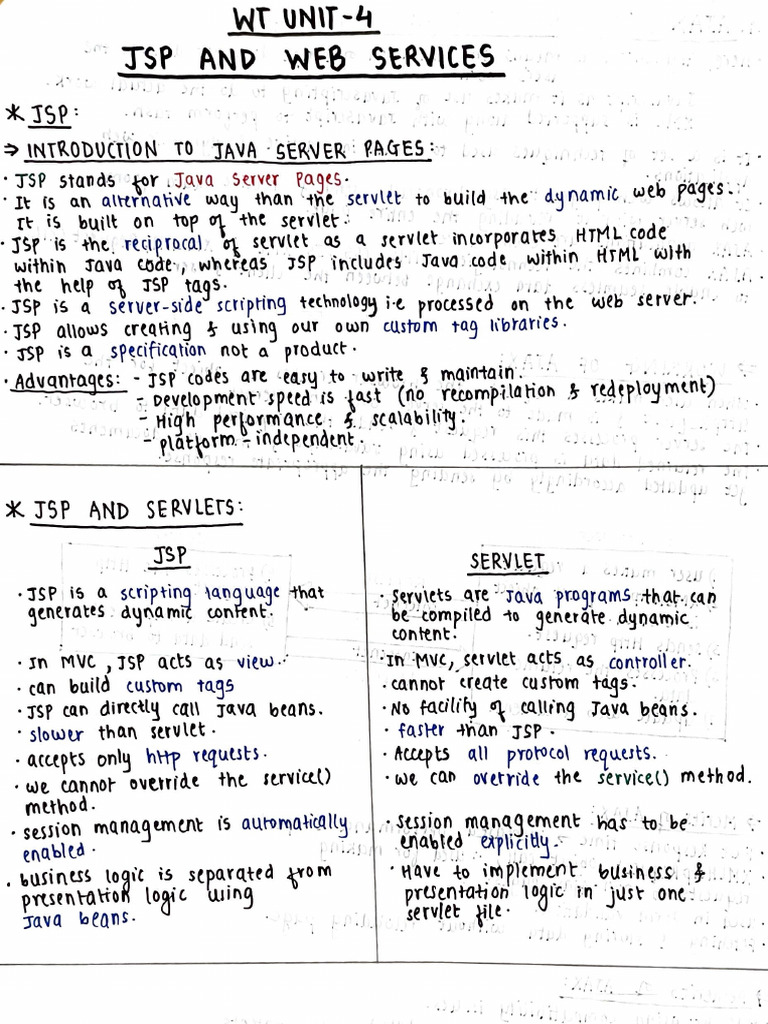 WT UNIT-4
JSP AND WEB SERVICES
* JSP:
⇒ INTRODUCTION TO JAVA SERVER PAGES:
· JSP stands for Java Server Pages.
· It is an alternative way than the servlet to build the dynamic web pages.
It is built on top of the servlet.
· JSP is the reciprocal of servlet as a servlet incorporates HTML code
within Java code whereas JSP includes Java code within HTML with
the help of JSP tags.
· JSP is a server-side scripting technology i.e processed on the web server.
· JSP allows creating & using our own custom tag libraries.
· JSP is a specification not a product.
· Advantages: - JSP codes are easy to write & maintain.
- Development speed is fast (no recompilation & redeployment)
- High performance & scalability.
- platform-independent.
* JSP AND SERVLETS:
JSP
· JSP is a scripting language that
generates dynamic content.
· In MVC, JSP acts as view.
· can build custom tags
· JSP can directly call Java beans.
· slower than servlet.
· accepts only http requests.
· we cannot override the service()
method.
· session management is automatically
enabled.
· business logic is separated from
presentation logic using
Java beans.
SERVLET
· Servlets are Java programs that can
be compiled to generate dynamic
content.
· In MVC, servlet acts as controller.
· cannot create custom tags.
· No facility of calling Java beans.
· faster than JSP.
· Accepts all protocol requests.
· we can override the service() method.
· Session management has to be
enabled explicitly.
· Have to implement business &
presentation logic in just one
servlet file.